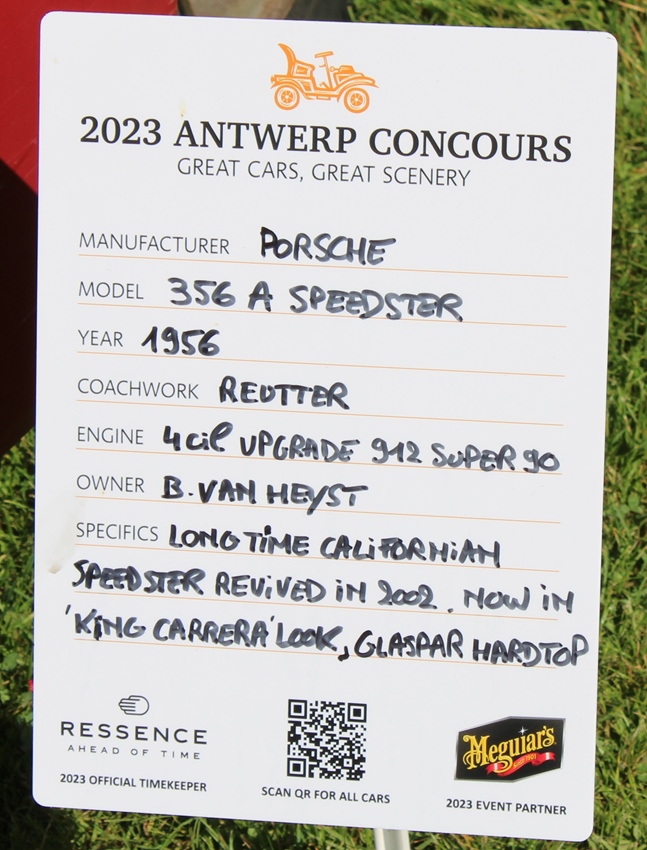 2023 ANTWERP CONCOURS
GREAT CARS, GREAT SCENERY
MANUFACTURER PORSCHE
MODEL 356 A SPEEDSTER
YEAR 1956
COACHWORK REUTTER
ENGINE 4cil UPGRADE 912 SUPER 90
OWNER B. VAN HEYST
SPECIFICS LONG TIME CALIFORNIAN
SPEEDSTER REVIVED IN 2002. NOW IN
'KING CARRERA' LOOK, GLASPAR HARDTOP
RESSENCE
AHEAD OF TIME
2023 OFFICIAL TIMEKEEPER
SCAN QR FOR ALL CARS
Meguiar's
SINCE 1901
2023 EVENT PARTNER